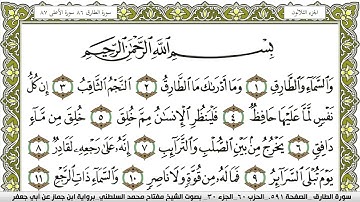 الجزء الثلاثون سورة الطارق ٨٦ سورة الأعلى ٨٧
بِسْمِ اللَّهِ الرَّحْمَٰنِ الرَّحِيمِ
وَالسَّمَآءِ وَالطَّارِقِ ١ وَمَآ أَدْرَىٰكَ مَا الطَّارِقُ ٢ النَّجْمُ الثَّاقِبُ ٣ إِن كُلُّ
نَفْسٍ لَّمَّا عَلَيْهَا حَافِظٌ ٤ فَلْيَنظُرِ الْإِنسَٰنُ مِمَّ خُلِقَ ٥ خُلِقَ مِن مَّآءٍ
دَافِقٍ ٦ يَخْرُجُ مِنۢ بَيْنِ الصُّلْبِ وَالتَّرَآئِبِ ٧ إِنَّهُۥ عَلَىٰ رَجْعِهِۦ لَقَادِرٌ ٨
يَوْمَ تُبْلَى السَّرَآئِرُ ٩ فَمَا لَهُۥ مِن قُوَّةٍ وَلَا نَاصِرٍ ١٠ وَالسَّمَآءِ ذَاتِ الرَّجْعِ ١١
سورة الطارق - الصفحة ٥٩١ - الحزب ٦٠ - الجزء ٣٠ - بصوت الشيخ مفتاح محمد السلطني برواية ابن جماز عن أبي جعفر